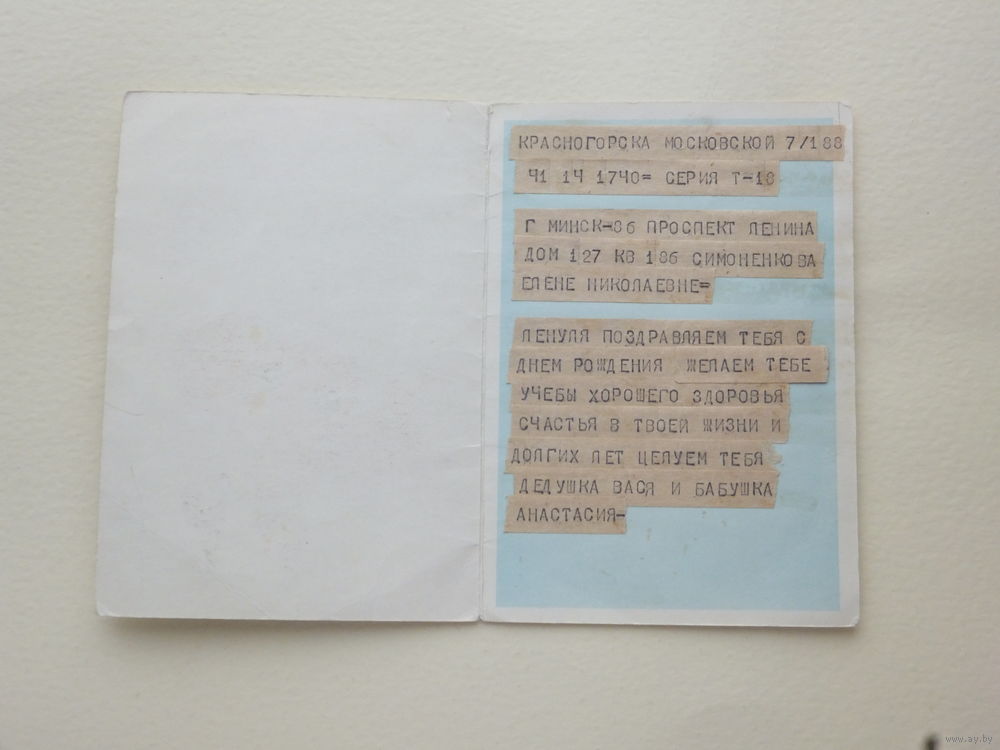 КРАСНОГОРСКА МОСКОВСКОЙ 7/188
Ч1 1Ч 17Ч0= СЕРИЯ Т-18
Г МИНСК-86 ПРОСПЕКТ ЛЕНИНА
ДОМ 127 КВ 186 СИМОНЕНКОВА
ЕЛЕНЕ НИКОЛАЕВНЕ=
ЛЕНУЛЯ ПОЗДРАВЛЯЕМ ТЕБЯ С
ДНЕМ РОЖДЕНИЯ ЖЕЛАЕМ ТЕБЕ
УЧЕБЫ ХОРОШЕГО ЗДОРОВЬЯ
СЧАСТЬЯ В ТВОЕЙ ЖИЗНИ И
ДОЛГИХ ЛЕТ ЦЕЛУЕМ ТЕБЯ
ДЕДУШКА ВАСЯ И БАБУШКА
АНАСТАСИЯ-
www.ay.by